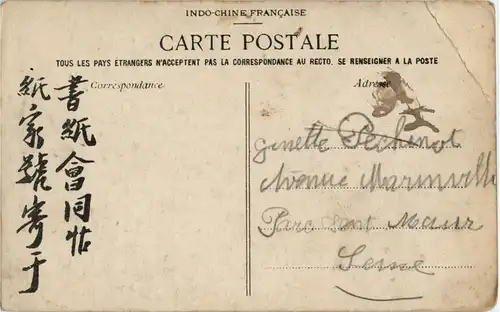 INDO-CHINE FRANÇAISE
CARTE POSTALE
TOUS LES PAYS ÉTRANGERS N'ACCEPTENT PAS LA CORRESPONDANCE AU RECTO. SE RENSEIGNER A LA POSTE
Correspondance
書紙會同帖
紙家號寄于
Adresse
Ginette Pechinot
Avenue Marinville
Parc Saint Maur
Seine